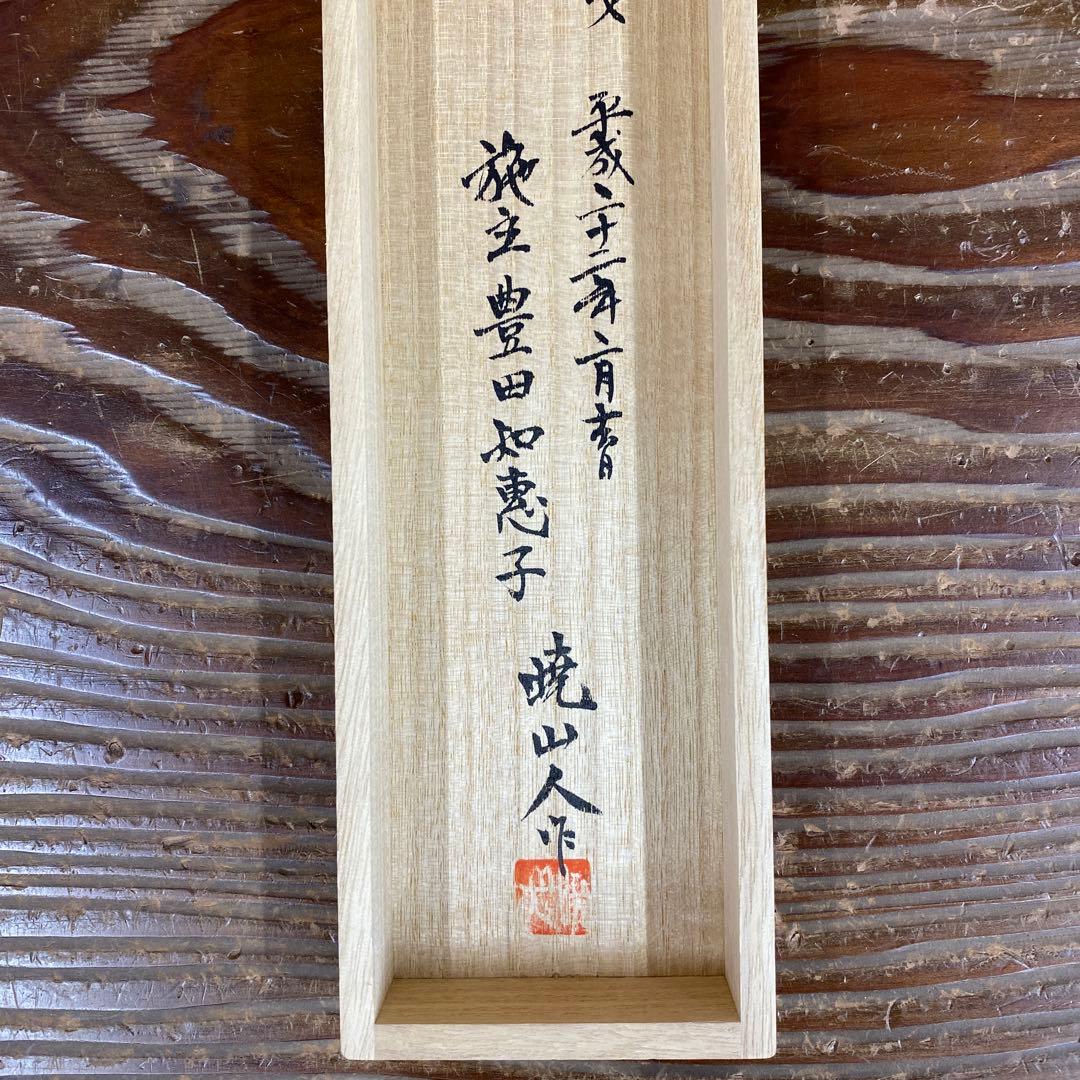 平成二十二年二月
施主 豊田知惠子
暁山人作